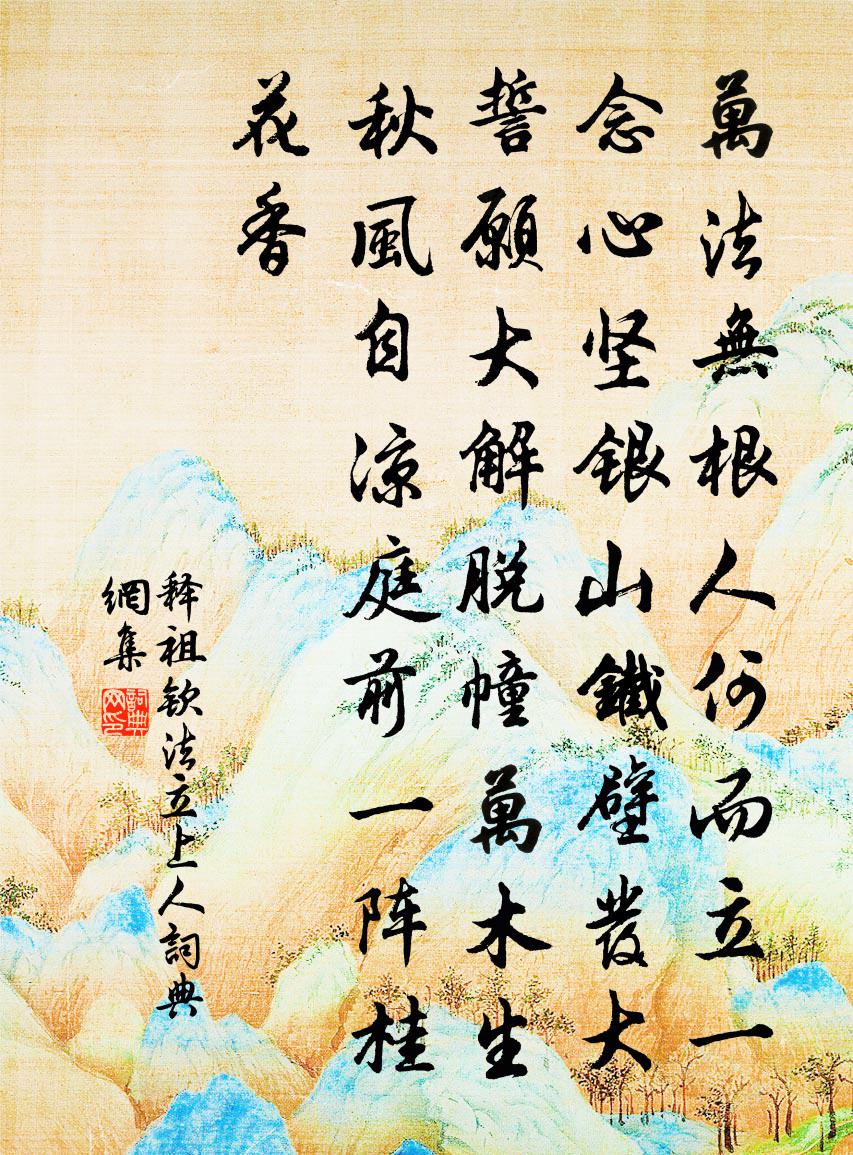 萬法無根人何而立一
念心坚銀山鐵壁發大
誓願大解脱幢萬木生
秋風自凉庭前一阵桂
花香
释祖钦法立上人詞典
網集
詞典
网印